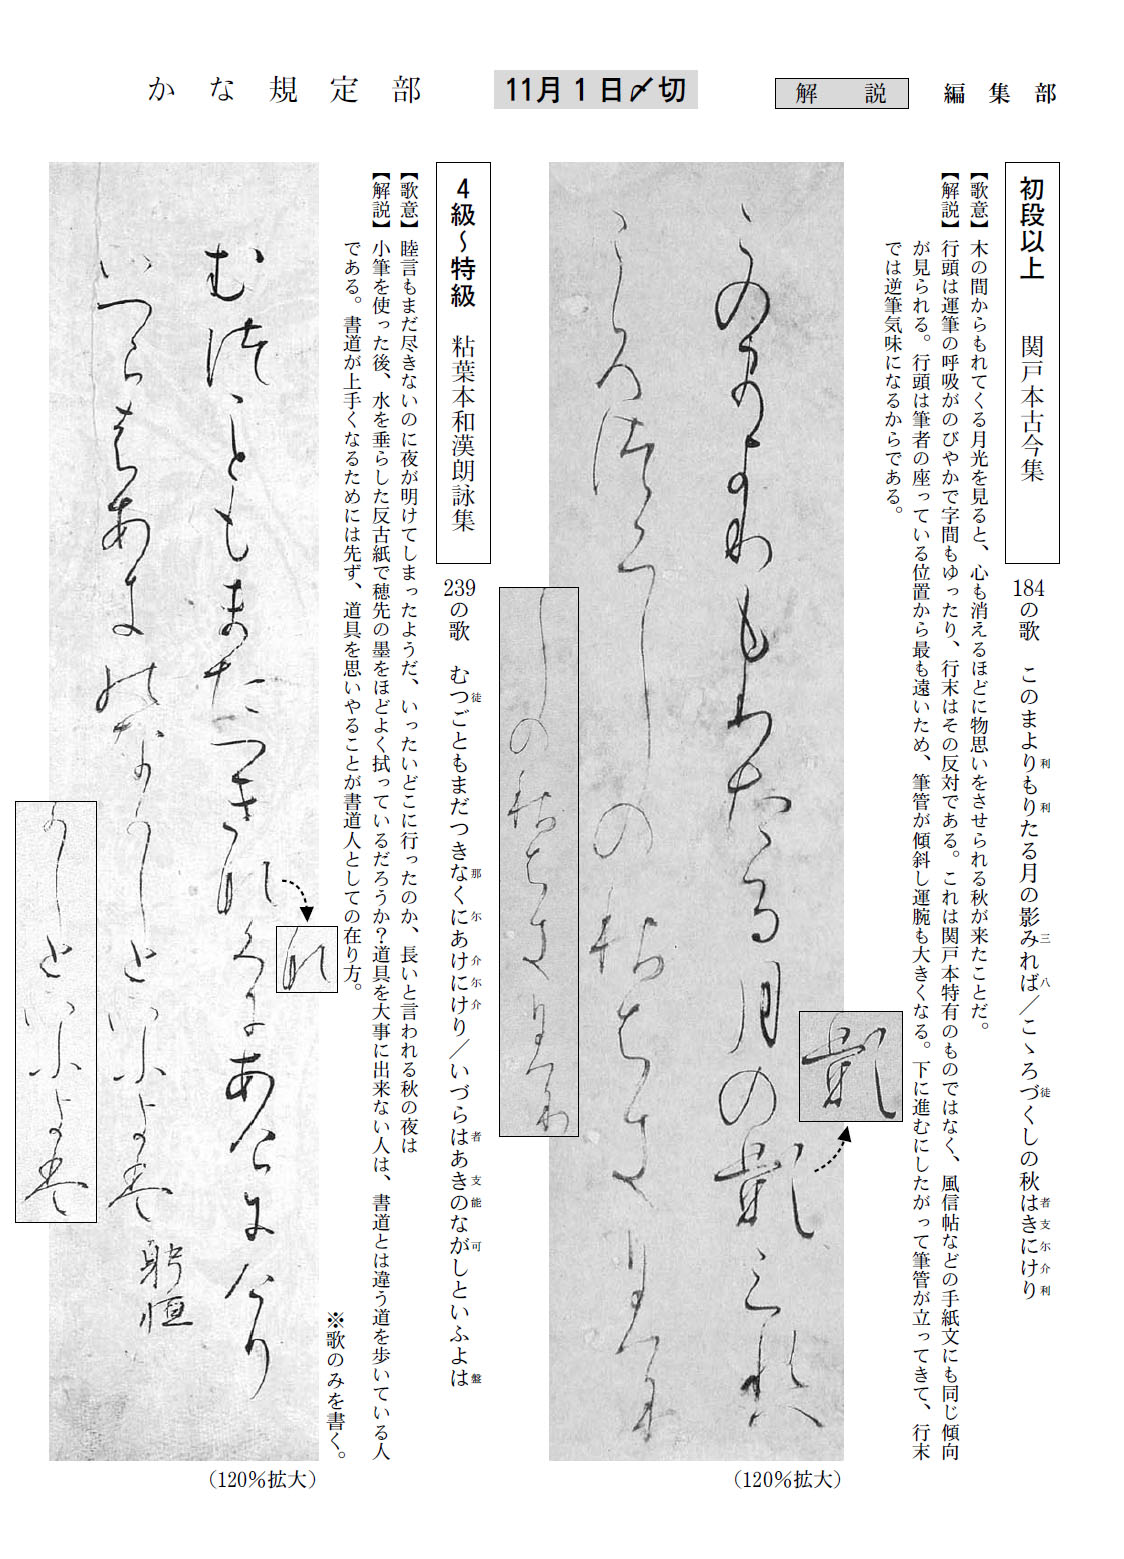 かな規定部
11月1日〆切
解説
編集部
初段以上　関戸本古今集
184の歌　このまよりもりたる月の影みれば／こゝろづくしの秋はきにけり
利　利　三　八　徒　者　支　尓　介　利
【歌意】木の間からもれてくる月光を見ると、心も消えるほどに物思いをさせられる秋が来たことだ。
【解説】行頭は運筆の呼吸がのびやかで字間もゆったり、行末はその反対である。これは関戸本特有のものではなく、風信帖などの手紙文にも同じ傾向
が見られる。行頭は筆者の座っている位置から最も遠いため、筆管が傾斜し運腕も大きくなる。下に進むにしたがって筆管が立ってきて、行末
では逆筆気味になるからである。
（120％拡大）
4級～特級　粘葉本和漢朗詠集
239の歌　むつごともまだつきなくにあけにけり／いづらはあきのながしといふよは
徒　那　尓　介　尓　介　者　支　能　可　盤
【歌意】睦言もまだ尽きないのに夜が明けてしまったようだ、いったいどこに行ったのか、長いと言われる秋の夜は
【解説】小筆を使った後、水を垂らした反古紙で穂先の墨をほどよく拭っているだろうか？道具を大事に出来ない人は、書道とは違う道を歩いている人
である。書道が上手くなるためには先ず、道具を思いやることが書道人としての在り方。
※歌のみを書く。
むつこともまたつきなくにあけにけり
いつらはあきのなかしといふよは
躬恒
（120％拡大）